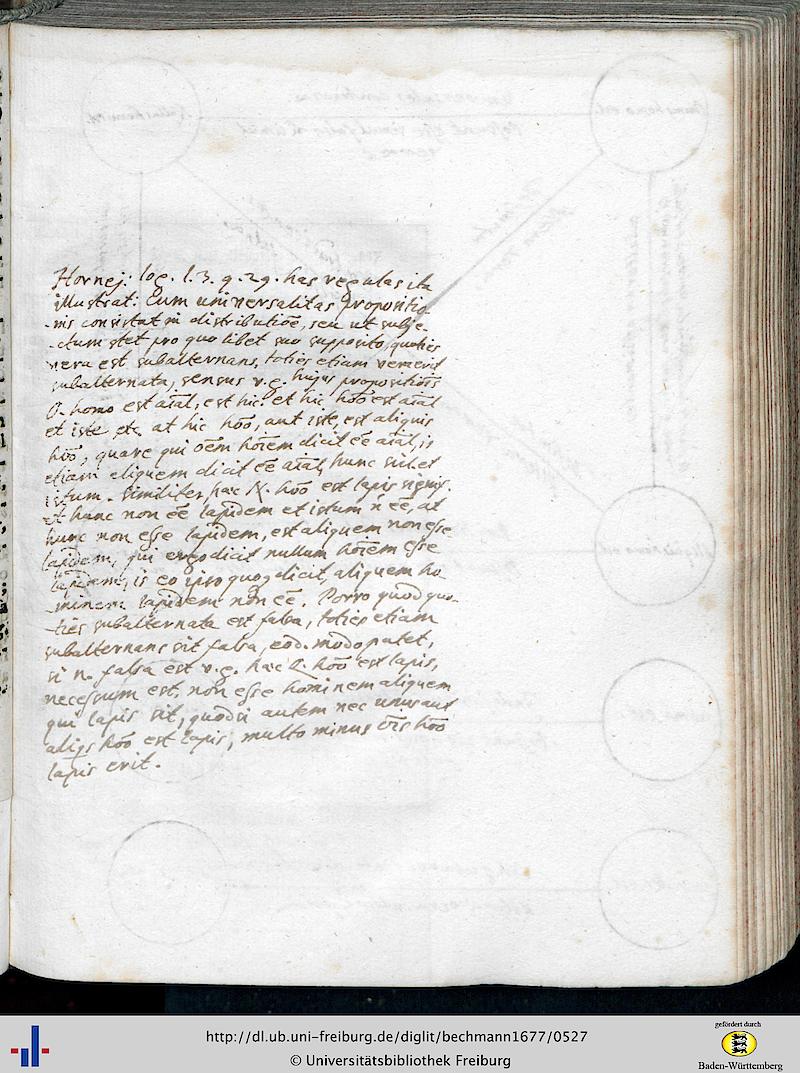 Hornej: log. l. 3. q. 29. has regulas ita
illustrat: Cum universalitas propositio-
-nis consistat in distributiōe, seu ut subje-
-ctum stet pro quolibet suo supposito, quoties
vera est subalternans, toties etiam vera erit
subalternata, sensus v. g. hujus propositiōis
O. homo est aīal, est hic: et hic hōō est aīal
et iste etc. at hic hōō, aut iste, est aliquis
hōō, quare qui oēm hōīem dicit eē aīal, is
etiam aliquem dicit eē aīal, hunc scil. et
istum. Similiter haec N. hōō est lapis
et hunc non eē lapidem et istum n̄ eē, at
hunc non esse lapidem, est aliquem non esse
lapidem, qui ergo dicit nullum hōīem esse
lapidem, is eo ipso quoq dicit, aliquem ho-
-minem lapidem non eē. Porro quod quo-
-ties subalternata est falsa, toties etiam
subalternans sit falsa, eod. modo patet,
si n. falsa est v. g. haec Q. hōō est lapis,
necessum est, non esse hominem aliquem
qui lapis sit, quodsi autem nec unus aut
aliqs hōō est lapis, multo minus ōīs hōō
lapis erit.
http://dl.ub.uni-freiburg.de/diglit/bechmann1677/0527
© Universitätsbibliothek Freiburg
gefördert durch
Baden-Württemberg